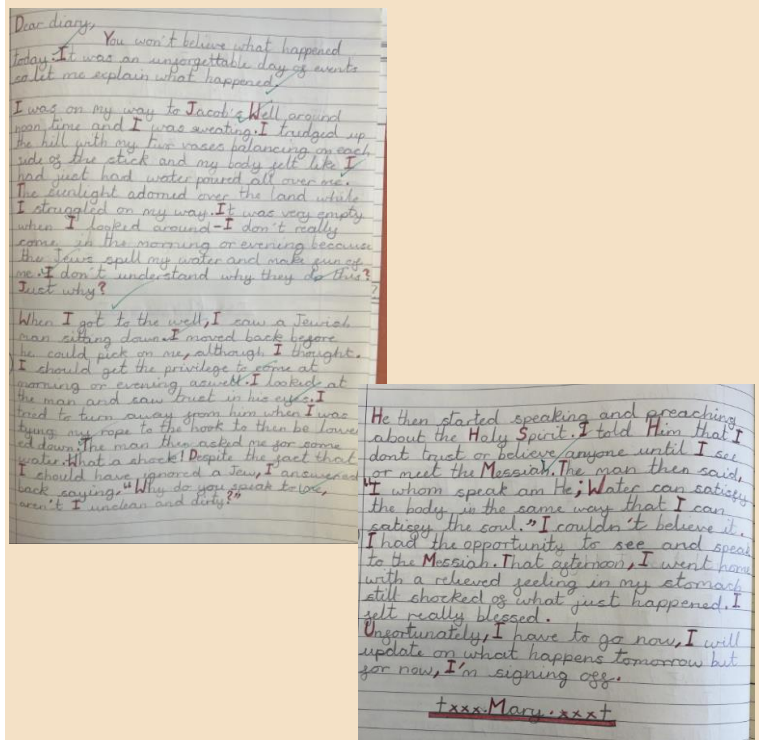 Dear diary,
You won't believe what happened
today. It was an unforgettable day of events
so let me explain what happened.
I was on my way to Jacob's Well around
noon time and I was sweating. I trudged up
the hill with my two vases balancing on each
side of the stick and my body felt like I
had just had water poured all over me.
The sunlight adorned over the land while
I struggled on my way. It was very empty
when I looked around - I don't really
come in the morning or evening because
the Jews spill my water and make fun of
me. I don't understand why they do this?
Just why?
When I got to the well, I saw a Jewish
man sitting down. I moved back before
he could pick on me, although I thought.
I should get the privilege to come at
morning or evening aswell. I looked at
the man and saw trust in his eyes. I
tried to turn away from him when I was
tying my rope to the hook to then be lower
ed down. The man then asked me for some
water. What a shock! Despite the fact that
I should have ignored a Jew, I answered
back saying, "Why do you speak to me,
aren't I unclean and dirty?"
He then started speaking and preaching
about the Holy Spirit. I told Him that I
dont trust or believe anyone until I see
or meet the Messiah. The man then said,
"I whom speak am He; Water can satisfy
the body, in the same way that I can
satisfy the soul." I couldn't believe it.
I had the opportunity to see and speak
to the Messiah. That afternoon, I went home
with a relieved feeling in my stomach
still shocked of what just happened. I
felt really blessed.
Unfortunately, I have to go now, I will
update on what happens tomorrow but
for now, I'm signing off.
†xxx. Mary. xxx†